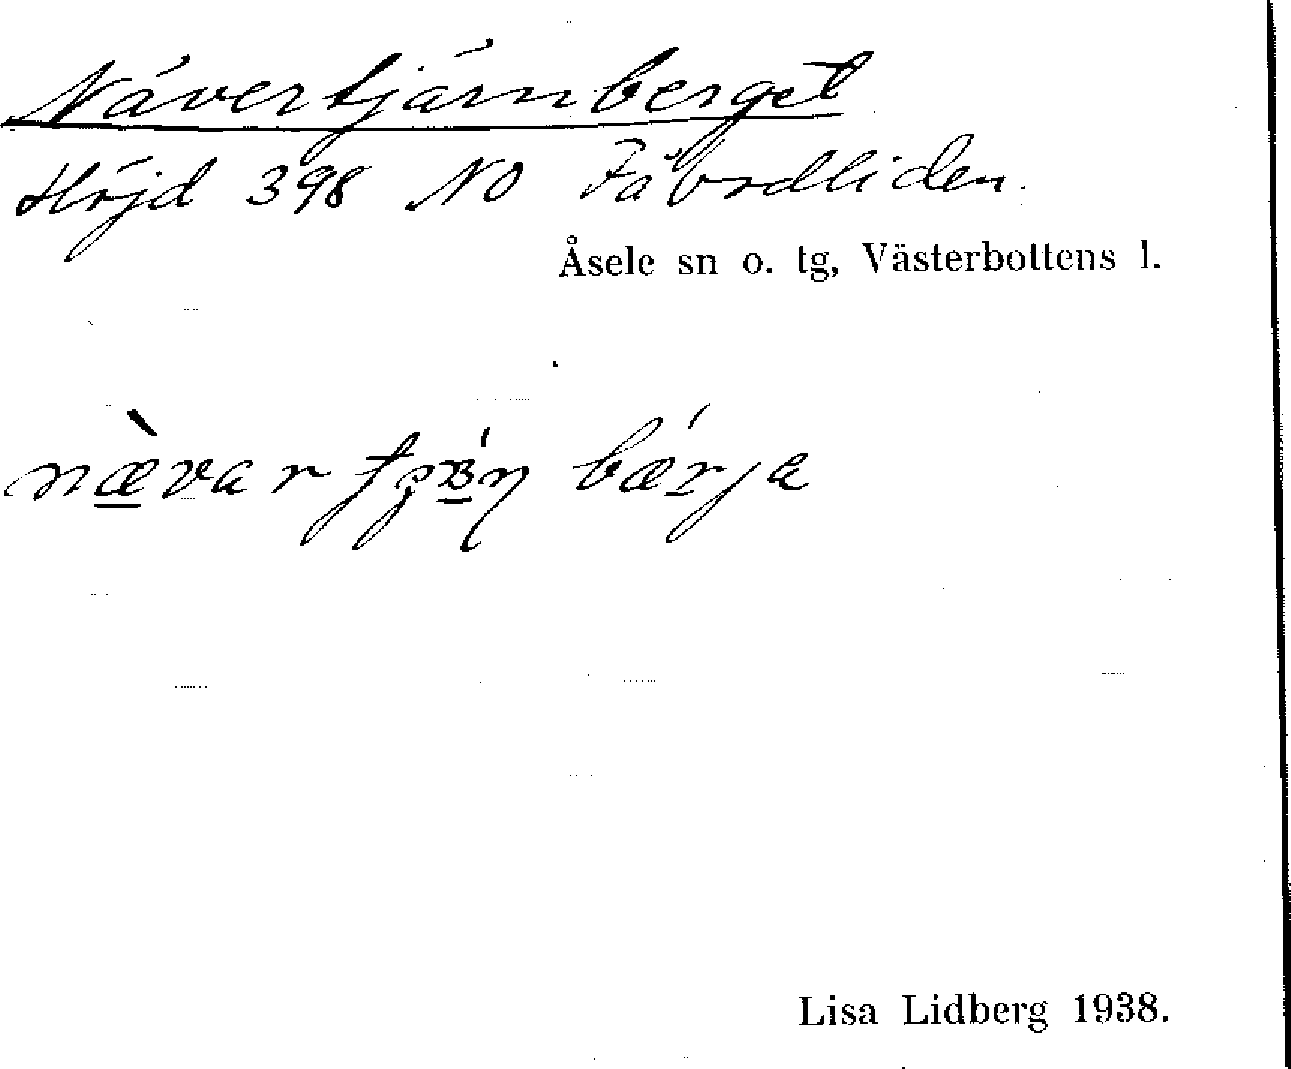 Nävertjärnberget
Höjd 398 NO Fåbodliden.
Åsele sn o. tg, Västerbottens l.
Lisa Lidberg 1938.